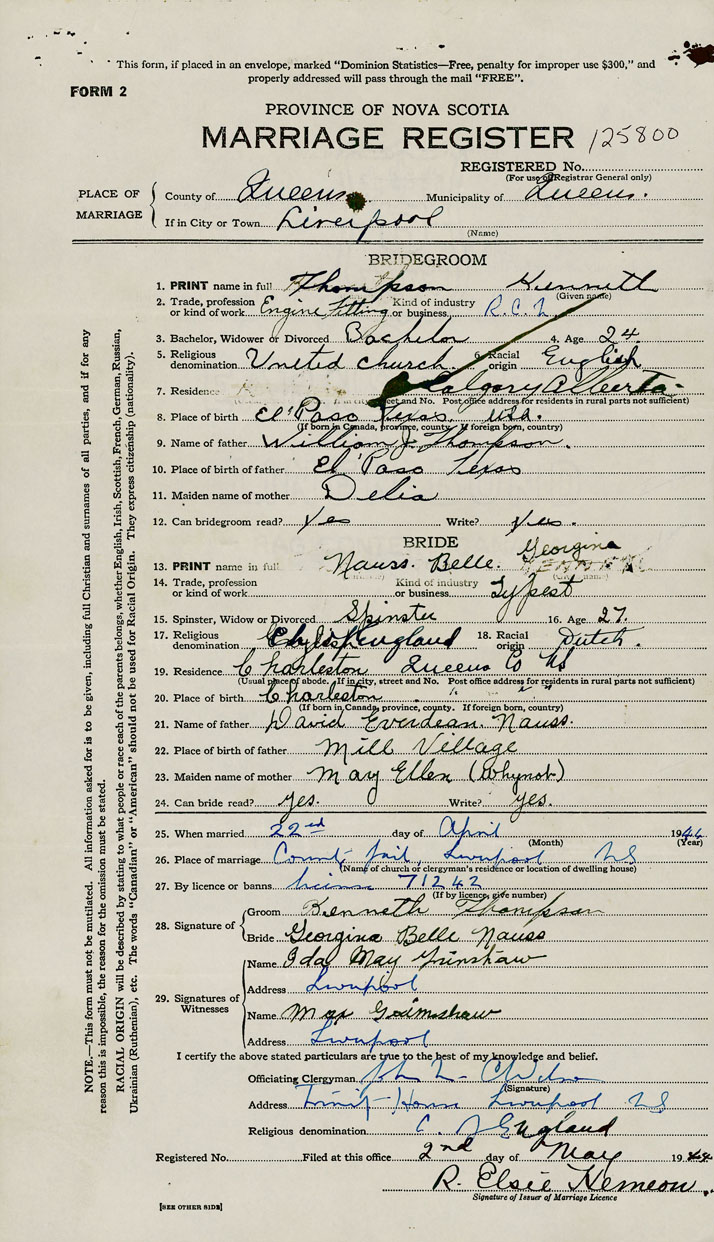 This form, if placed in an envelope, marked "Dominion Statistics—Free, penalty for improper use $300," and
properly addressed will pass through the mail "FREE".
FORM 2
PROVINCE OF NOVA SCOTIA
MARRIAGE REGISTER 125800
REGISTERED No.
(For use of Registrar General only)
PLACE OF MARRIAGE
County of Queens Municipality of Queens.
If in City or Town Liverpool
(Name)
BRIDEGROOM
1. PRINT name in full Thompson Kenneth
(Given name)
2. Trade, profession or kind of work Engine Fitting Kind of industry or business R.C.N.
3. Bachelor, Widower or Divorced Bachelor 4. Age 24
5. Religious denomination United church. 6. Racial origin English
7. Residence Calgary Alberta.
street and No. Post office address for residents in rural parts not sufficient)
8. Place of birth El Paso Texas. USA.
(If born in Canada, province, county. If foreign born, country)
9. Name of father William J. Thompson.
10. Place of birth of father El Paso Texas
11. Maiden name of mother Delia
12. Can bridegroom read? Yes Write? Yes.
BRIDE
13. PRINT name in full Nauss. Belle. Georgina
14. Trade, profession or kind of work Kind of industry or business Typest
15. Spinster, Widow or Divorced Spinster 16. Age 27.
17. Religious denomination Ch of England 18. Racial origin Dutch.
19. Residence Charleston Queens Co NS
(Usual place of abode. If in city, street and No. Post office address for residents in rural parts not sufficient)
20. Place of birth Charleston " " "
(If born in Canada, province, county. If foreign born, country)
21. Name of father David Everdean Nauss.
22. Place of birth of father Mill Village
23. Maiden name of mother Mary Ellen (Whynot)
24. Can bride read? yes. Write? yes.
25. When married 22nd day of April 1944
(Month) (Year)
26. Place of marriage County Jail, Liverpool NS
(Name of church or clergyman's residence or location of dwelling house)
27. By licence or banns license 71242
(If by licence, give number)
28. Signature of
Groom Kenneth Thompson
Bride Georgina Belle Nauss
29. Signatures of Witnesses
Name Ida May Grinshaw
Address Liverpool
Name Max Grimshaw
Address Liverpool
I certify the above stated particulars are true to the best of my knowledge and belief.
Officiating Clergyman
(Signature)
Address Trinity House Liverpool NS
Religious denomination C. of England
Registered No. Filed at this office 2nd day of May 1944
R. Elsie Nemeon.
Signature of Issuer of Marriage Licence
[SEE OTHER SIDE]
NOTE.—This form must not be mutilated. All information asked for is to be given, including full Christian and surnames of all parties, and if for any
reason this is impossible, the reason for the omission must be stated.
RACIAL ORIGIN will be described by stating to what people or race each of the parents belongs, whether English, Irish, Scottish, French, German, Russian,
Ukrainian (Ruthenian), etc. The words "Canadian" or "American" should not be used for Racial Origin. They express citizenship (nationality).